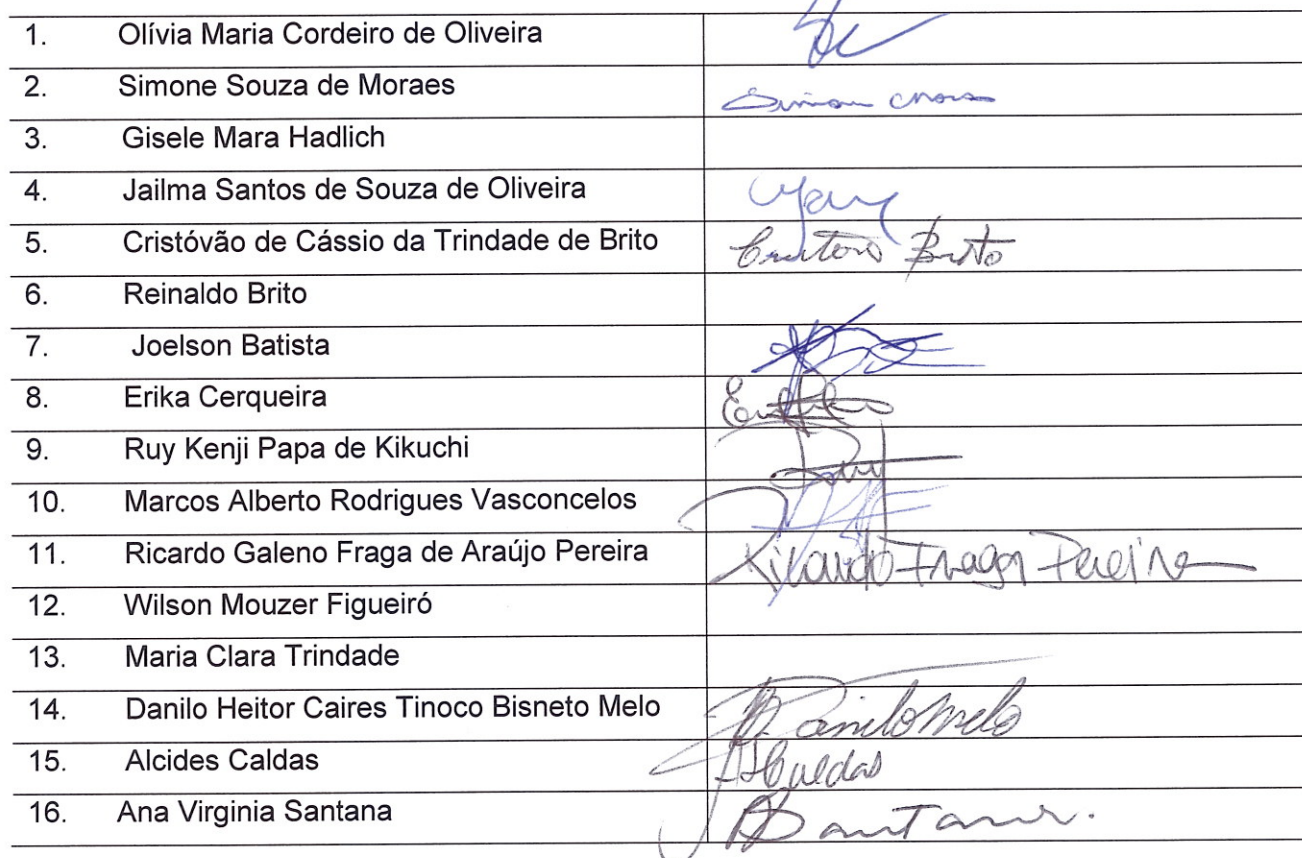 1. Olívia Maria Cordeiro de Oliveira
2. Simone Souza de Moraes
3. Gisele Mara Hadlich
4. Jailma Santos de Souza de Oliveira
5. Cristóvão de Cássio da Trindade de Brito Brito
6. Reinaldo Brito
7. Joelson Batista
8. Erika Cerqueira
9. Ruy Kenji Papa de Kikuchi
10. Marcos Alberto Rodrigues Vasconcelos
11. Ricardo Galeno Fraga de Araújo Pereira Ricardo Fraga Pereira
12. Wilson Mouzer Figueiró
13. Maria Clara Trindade
14. Danilo Heitor Caires Tinoco Bisneto Melo Danilo Melo
15. Alcides Caldas
16. Ana Virginia Santana Santana.